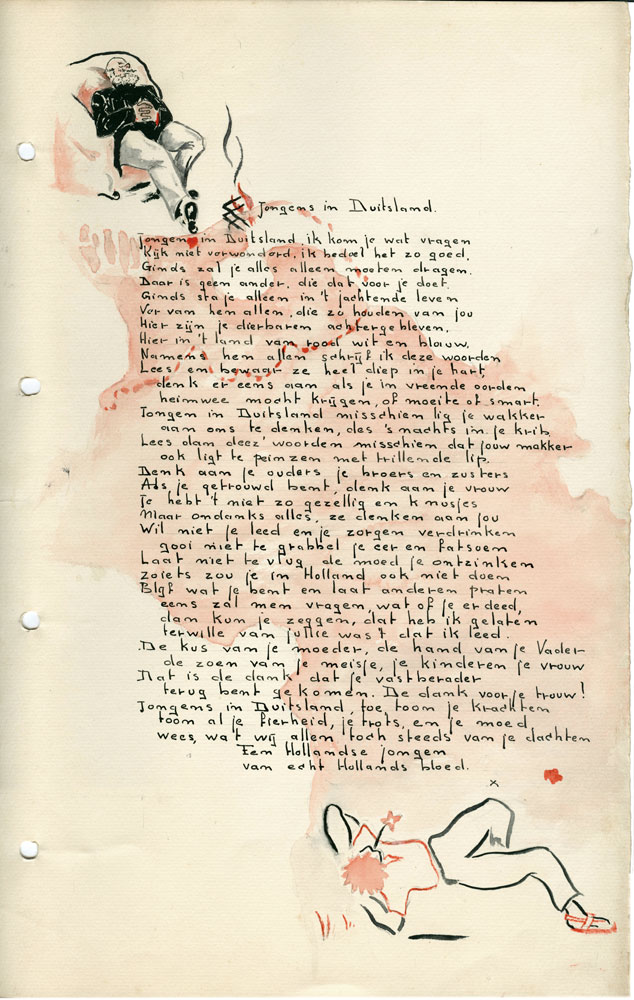 Jongens in Duitsland.
Jongens in Duitsland, ik kom je wat vragen
Kijk niet verwonderd, ik bedoel het zo goed.
Ginds zal je alles alleen moeten dragen.
Daar is geen ander, die dat voor je doet.
Ginds sta je alleen in 't jachtende leven
Ver van hen allen, die zo houden van jou
Hier zijn je dierbaren achtergebleven.
Hier in 't land van rood wit en blauw.
Namens hen allen schrijf ik deze woorden
Lees en bewaar ze heel diep in je hart,
denk er eens aan als je in vreemde oorden
heimwee mocht krijgen, of moeite of smart.
Jongens in Duitsland misschien lig je wakker
aan ons te denken, des 's nachts in je krib.
Lees dan deez' woorden misschien dat jouw makker
ook ligt te peinzen met trillende lip.
Denk aan je ouders je broers en zusters
Als je getrouwd bent, denk aan je vrouw
Je hebt 't niet zo gezellig en knusjes
Maar ondanks alles, ze denken aan jou
Wil niet je leed en je zorgen verdrinken
gooi niet te grabbel je eer en fatsoen
Laat niet te vlug de moed je ontzinken
zoiets zou je in Holland ook niet doen
Blijf wat je bent en laat anderen praten
eens zal men vragen, wat of je er deed,
dan kun je zeggen, dat heb ik gelaten
terwille van jullie was 't dat ik leed.
De kus van je moeder, de hand van je Vader
de zoen van je meisje, je kinderen je vrouw
Dat is de dank dat je vastberader
terug bent gekomen. De dank voor je trouw!
Jongens in Duitsland, toe, toon je krachten
toon al je fierheid, je trots, en je moed
wees, wat wij allen toch steeds van je dachten
Een Hollandse jongen
van echt Hollands bloed.
x